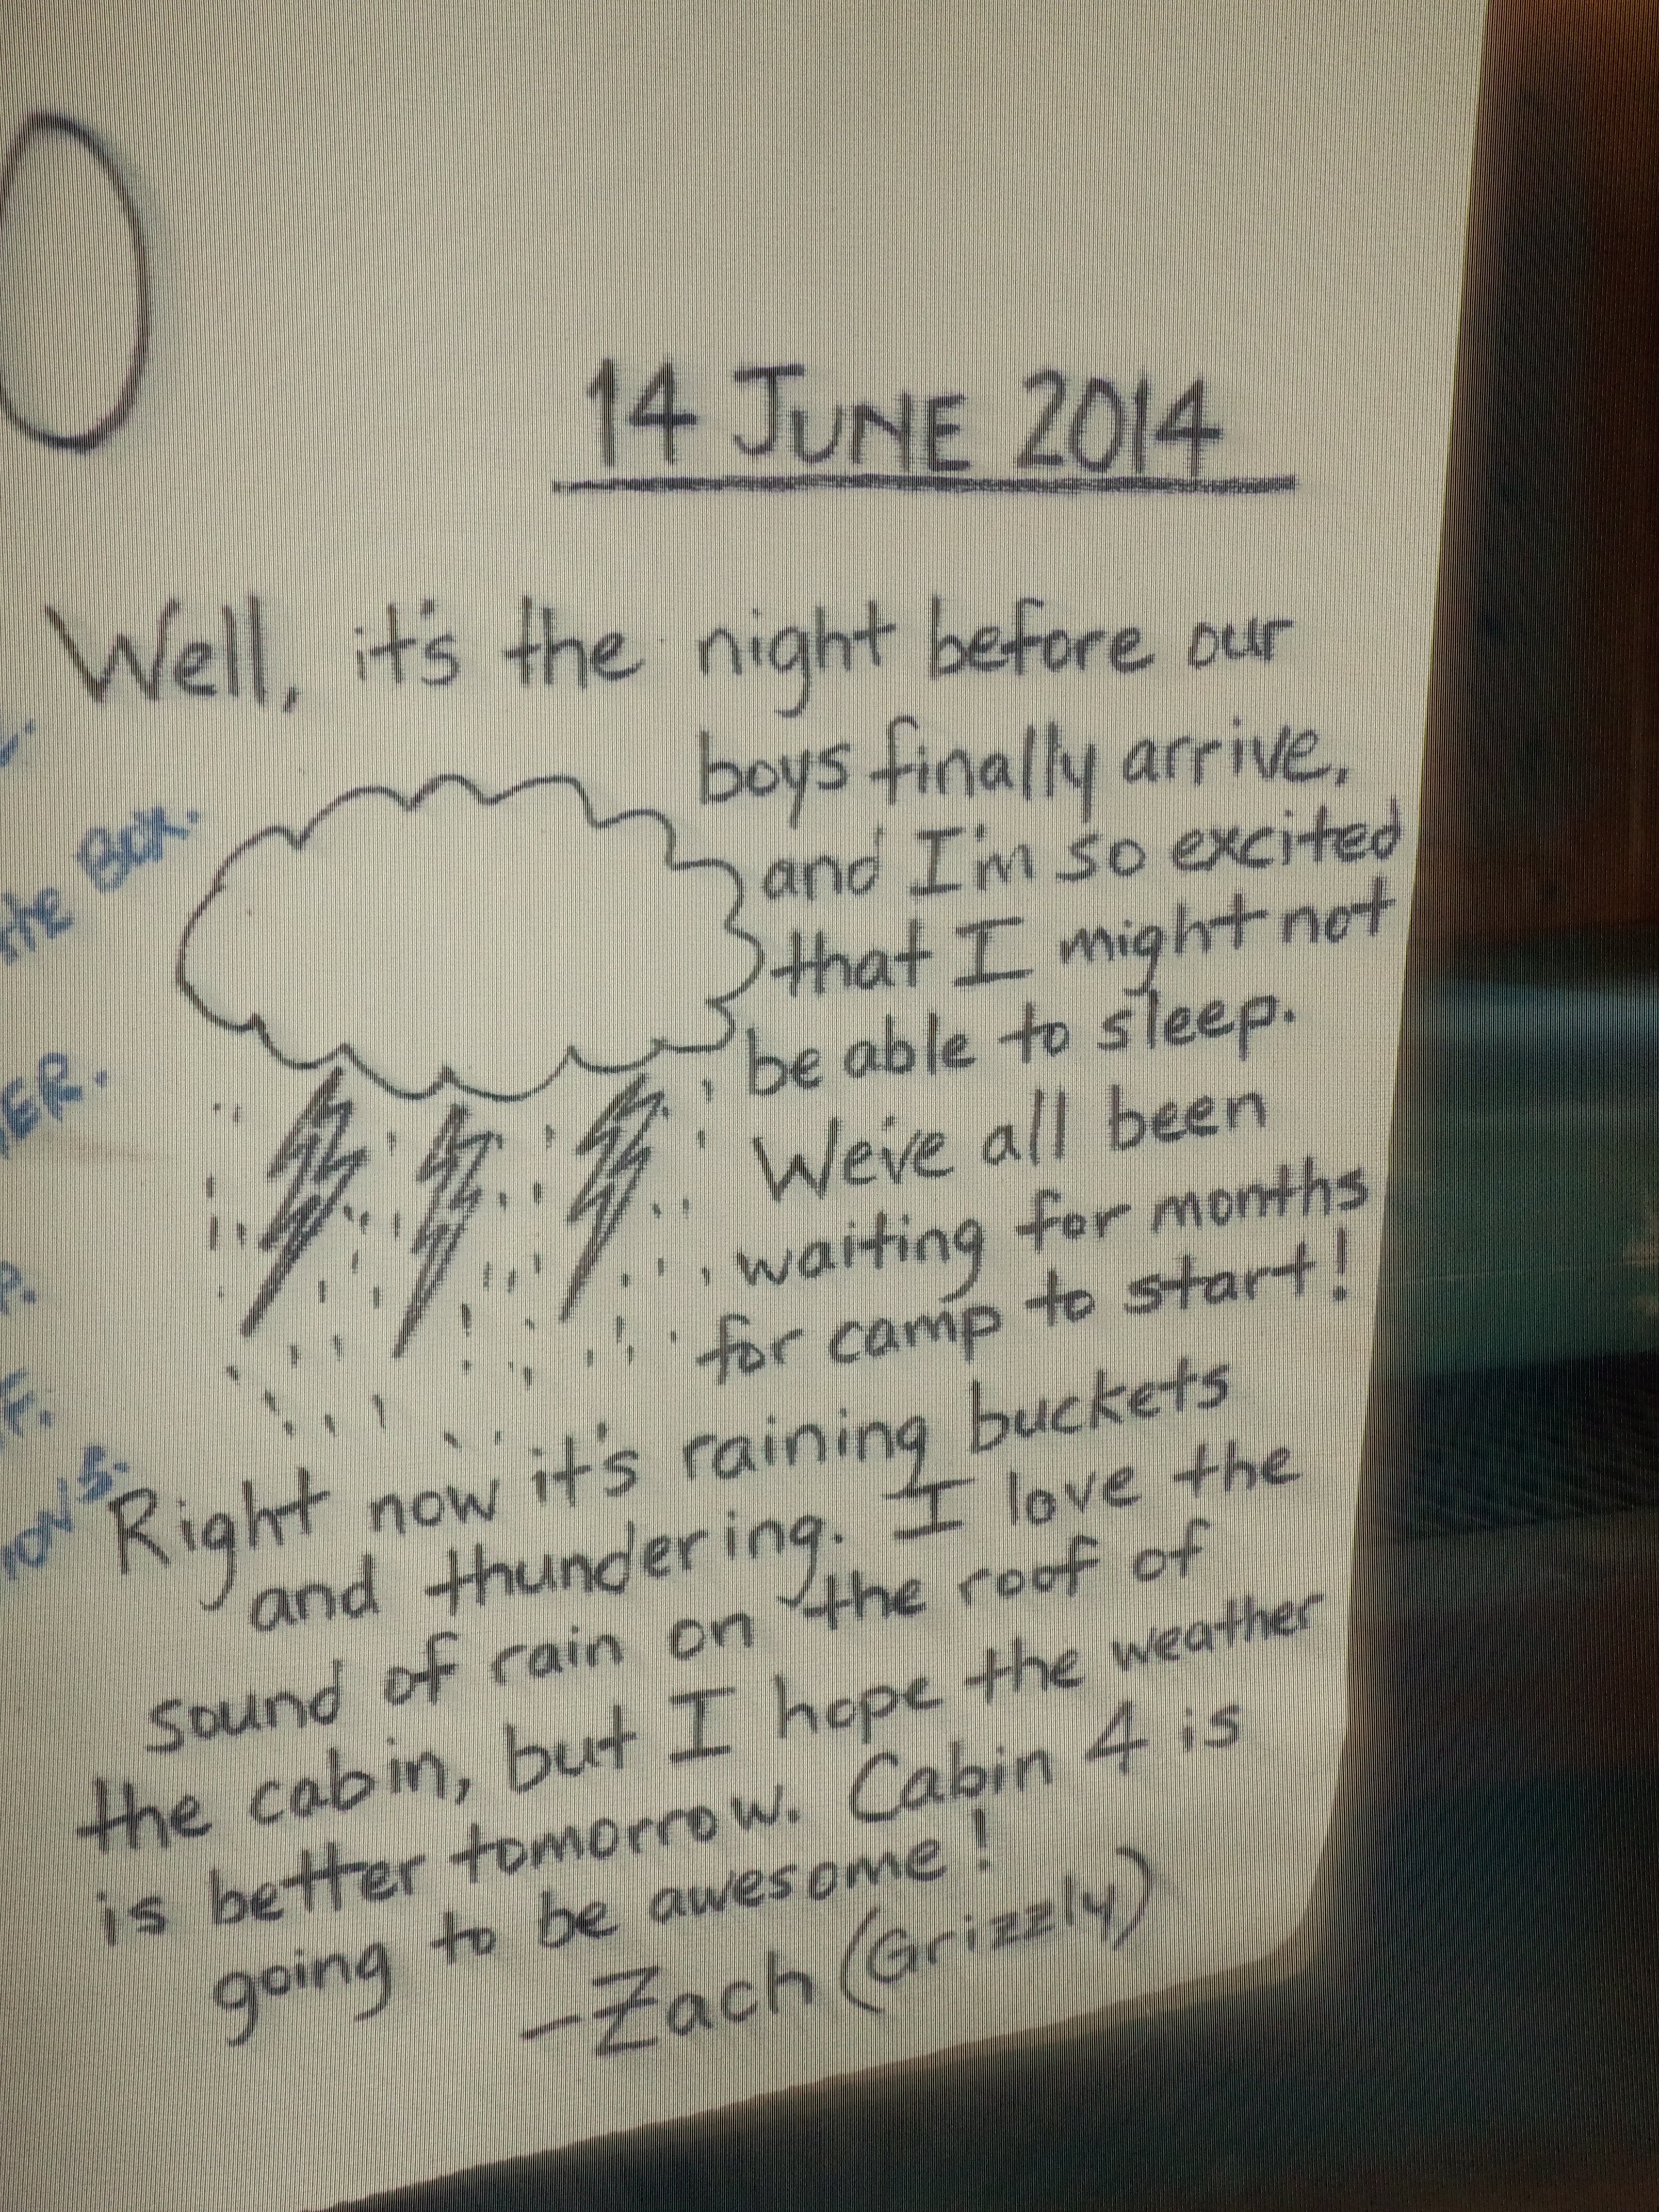 14 JUNE 2014
Well, it's the night before our
boys finally arrive,
and I'm so excited
that I might not
be able to sleep.
We've all been
waiting for months
for camp to start!
Right now it's raining buckets
and thundering. I love the
sound of rain on the roof of
the cabin, but I hope the weather
is better tomorrow. Cabin 4 is
going to be awesome!
-Zach (Grizzly)
the Box.